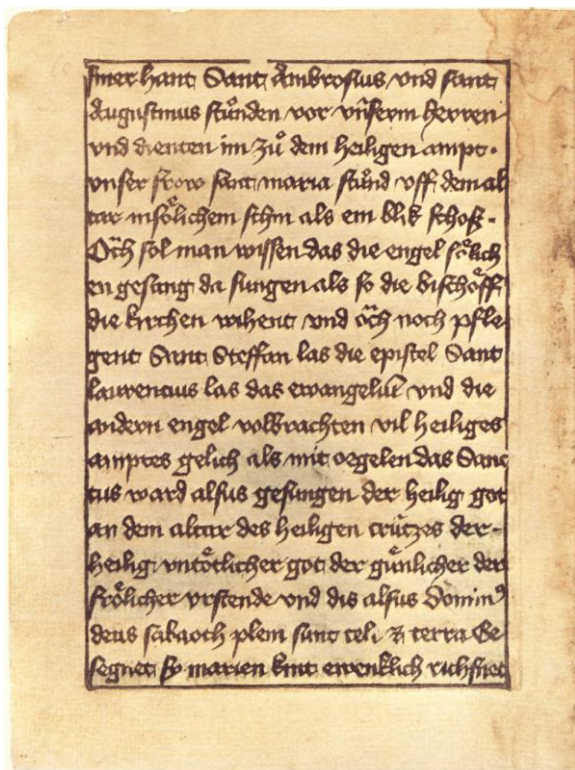 siner hant Sant Ambrosius vnd sant
Augustinus stůnden vor vnserm herren
vnd dienten im zů dem heiligen ampt.
vnser frow sant maria stůnd vff dem al
tar in soͤlichem schin als ein blik schosz.
Oͮch sol man wissen das die engel soͤlich
en gesang da sungen als so die bischoͤff
die kirchen wihent vnd oͮch noch pfle
gent Sant Steffan las die epistel Sant
laurencius las das ewangeliū vnd die
andern engel volbrachten vil heiliges
amptes gelich als mit orgelen das Sanc
tus ward alsus gesungen der heilig got
an dem altar des heiligen crützes der
heilig vntoͤtlicher got der guͤnlicher der
froͤlicher vrstende vnd dis alsus Dominꝰ
deus sabaoth pleni sunt celi ⁊ terra Ge
segnet sy marien kint ewenklich richsnet